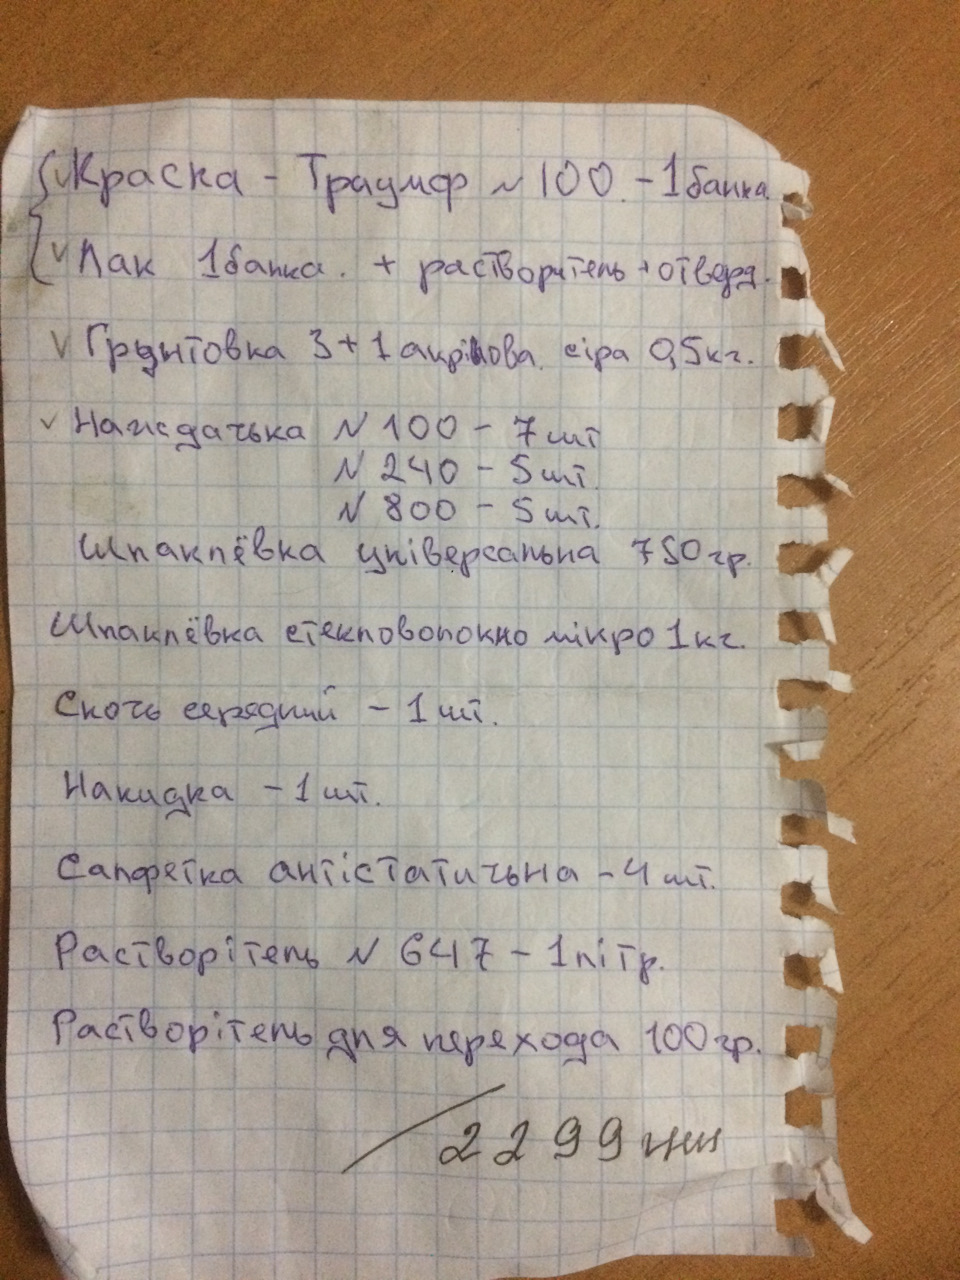 Краска - Траумф N 100. - 1 банка
Лак 1 банка. + растворитель + отверд.
Грунтовка 3+1 акрілова. сіра 0,5 кг.
Наждачька N 100 - 7 шт
N 240 - 5 шт.
N 800 - 5 шт.
Шпаклёвка універсальна 750 гр.
Шпаклёвка стекловолокно мікро 1 кг.
Скочь середний - 1 шт.
Накидка - 1 шт.
Салфетка антістатичьна - 4 шт.
Растворітель N 647 - 1 літр.
Растворітель для перехода 100 гр.
2299 грн